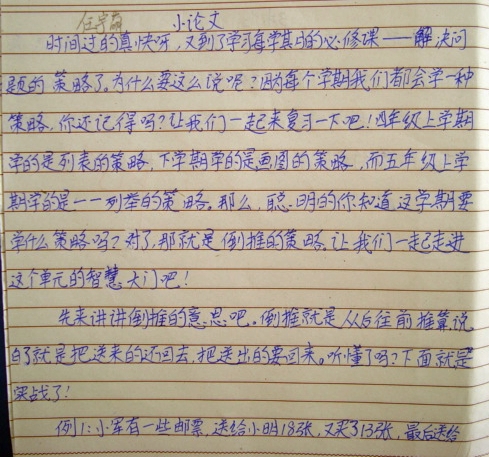 任宇萌 小论文
时间过的真快呀，又到了学习每学期的必修课——解决问
题的策略了。为什么要这么说呢？因为每个学期我们都会学一种
策略，你还记得吗？让我们一起来复习一下吧！四年级上学期
学的是列表的策略，下学期学的是画图的策略，而五年级上学
期学的是一一列举的策略。那么，聪明的你知道这学期要
学什么策略吗？对了，那就是倒推的策略。让我们一起走进
这个单元的智慧大门吧！
先来讲讲倒推的意思吧。倒推就是从后往前推算，说
白了就是把送来的还回去，把送出的要回来。听懂了吗？下面就是
实战了！
例1：小军有一些邮票，送给小明18张，又买了13张，最后送给